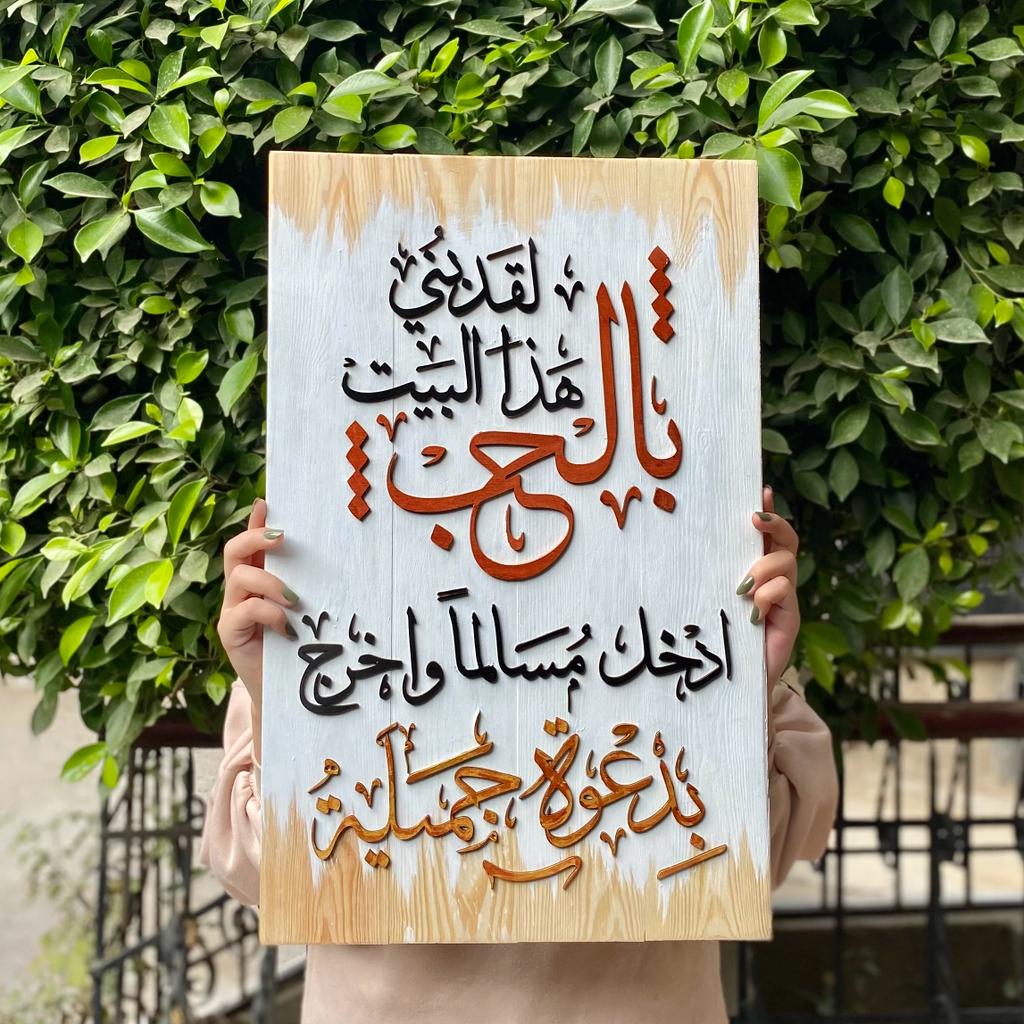 لقد بُني
هذا البيت
بالحب
ادخل مُسالماً واخرج
بدعوة جميلة